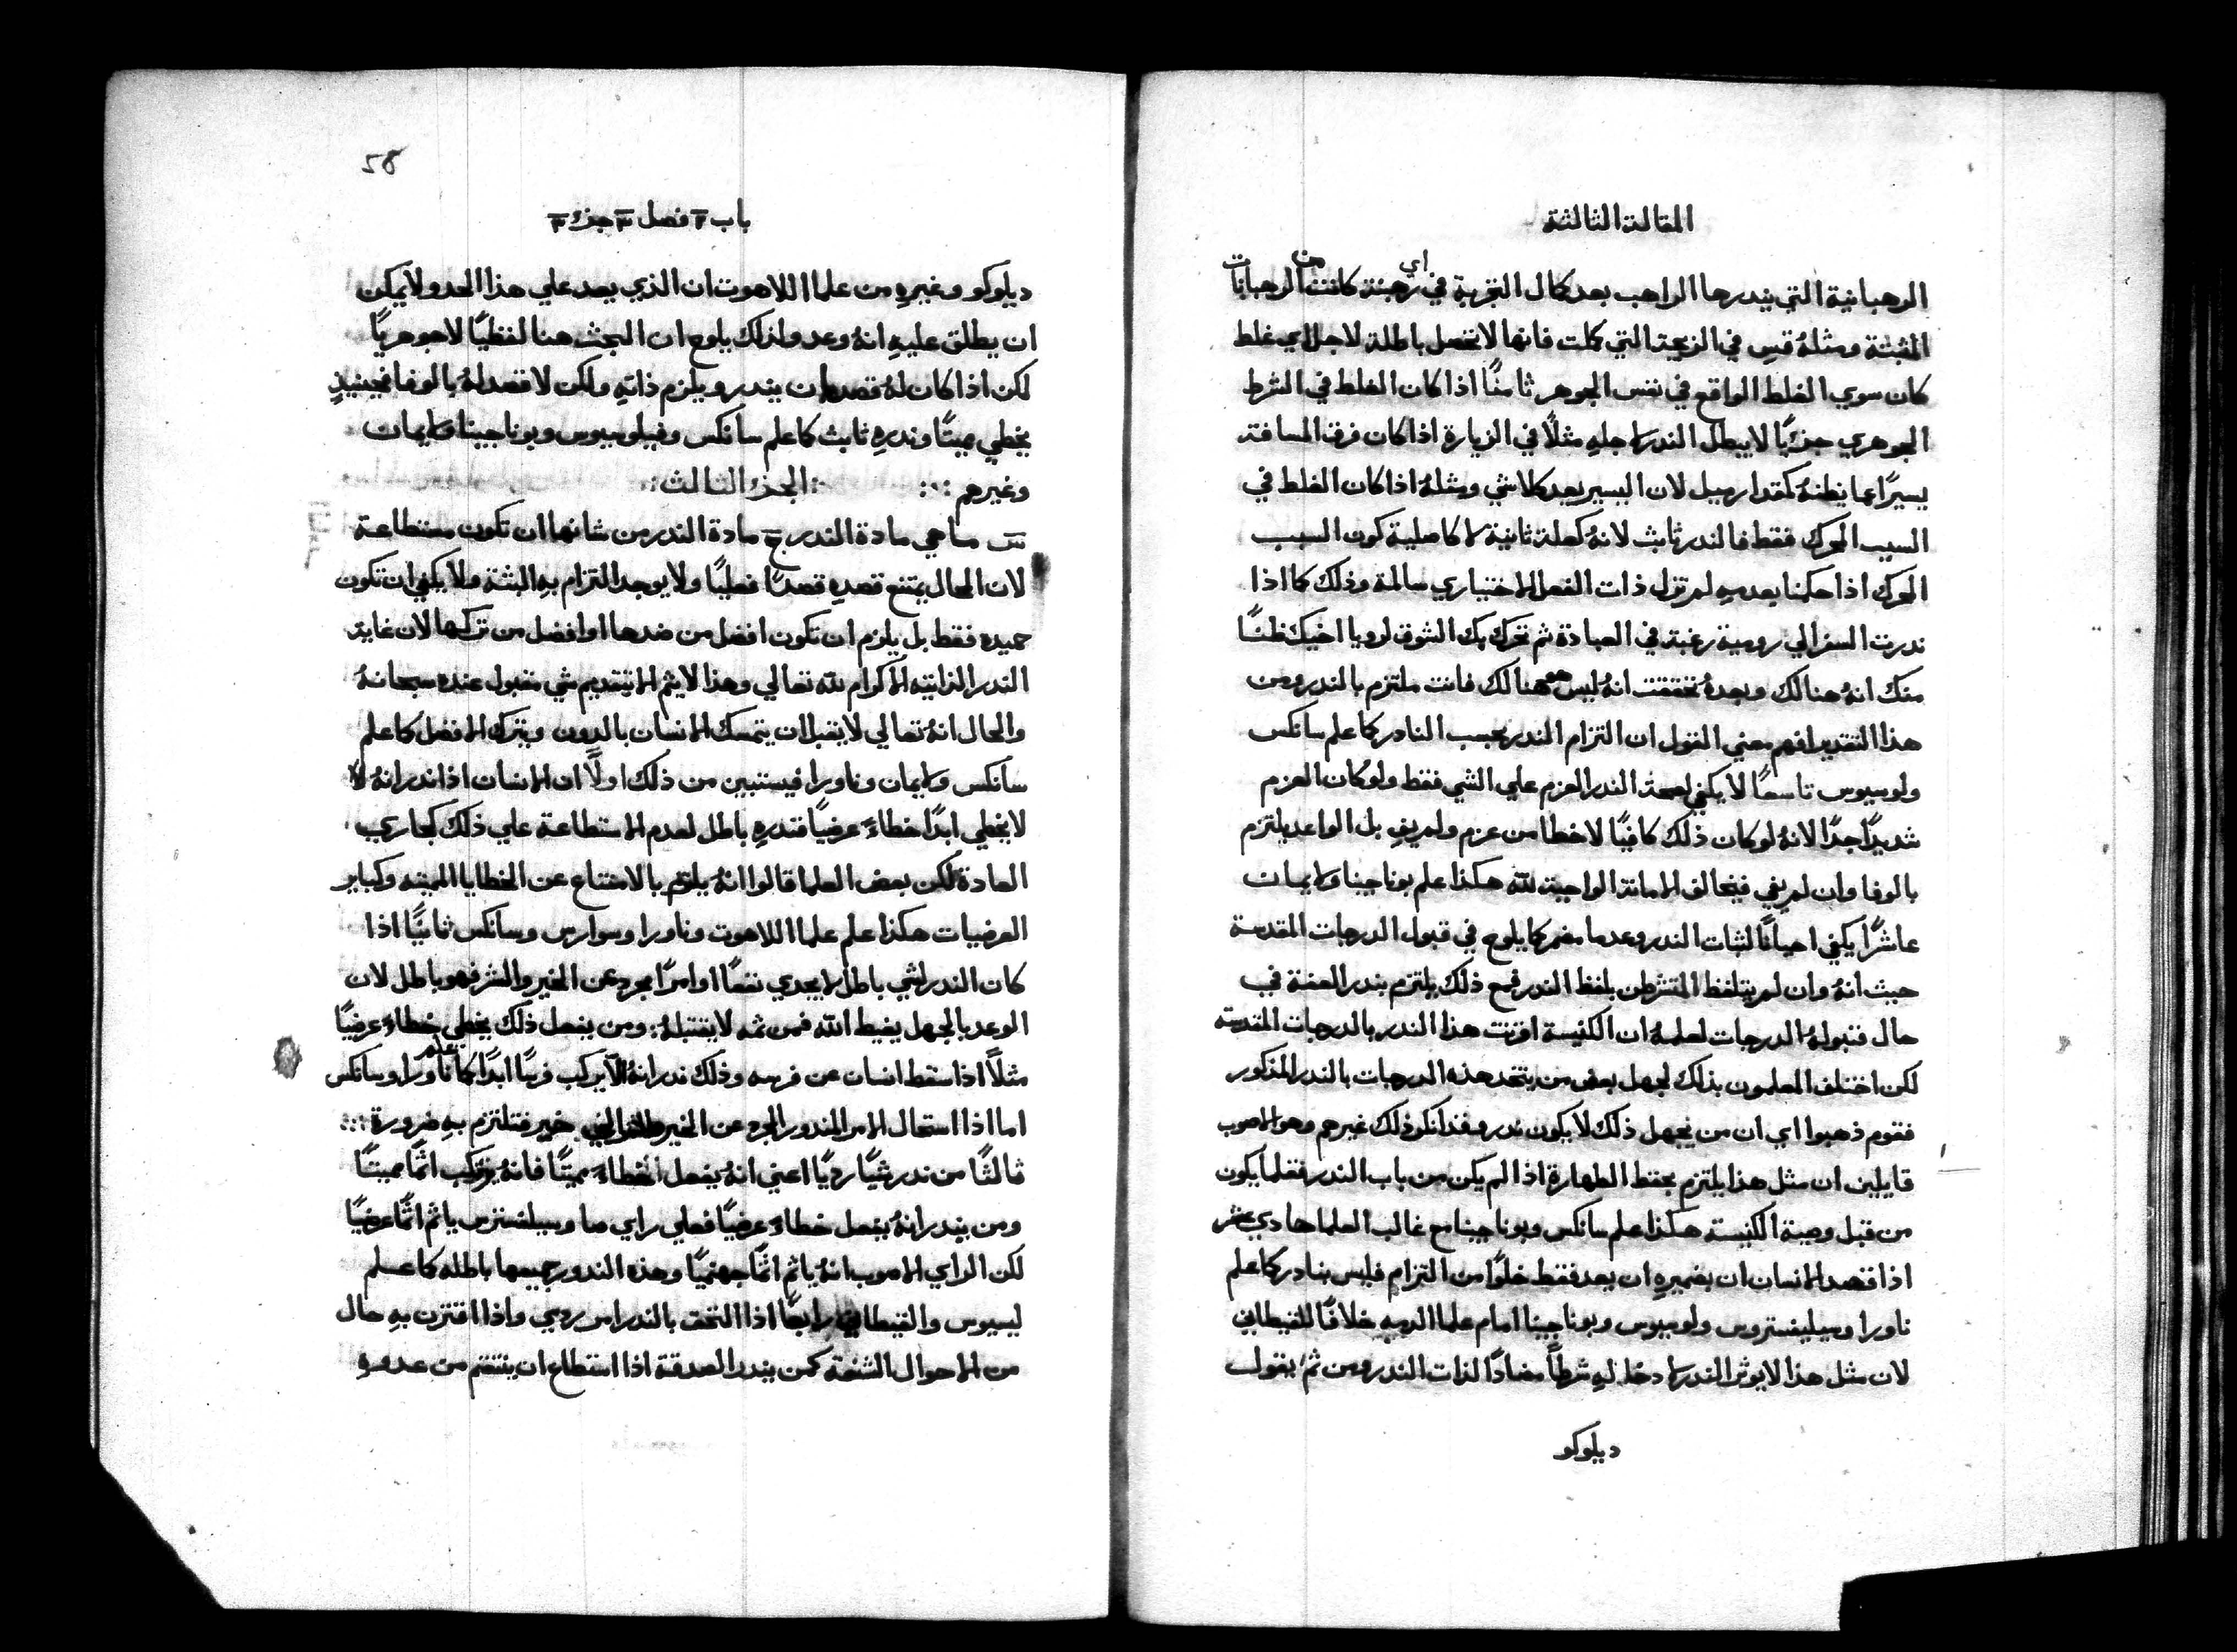 المقالة الثالثة
الرهبانية التي يندرها الراهب بعد كمال التجربة في اي رهبنة كانت من الرهبانات
المثبتة ومثلهُ قس في الزيجة التي كملت فانها لا تحصل باطلة لاجل اي غلط
كان سوي الغلط الواقع في نفس الجوهر ثامنًا اذا كان الغلط في الشرط
الجوهري جزيًا لا يبطل الندر لاجلهِ مثلًا في الزيارة اذا كان فرق المسافة
يسيرًا عما يظنهُ كمقدار ميل لان اليسير يعد كلا شي ومثلهُ اذا كان الغلط في
السبب المحرك فقط فالندر ثابت لانهُ كعلة ثانية لا كاصلية كون السبب
المحرك اذا حكمنا بعدمهِ لم تزل ذات الفعل الاختياري سالمة وذلك كما اذا
ندرت السفر الي رومية رغبة في العبادة ثم تحرك بك الشوق لرويا اخيك ظنًا
منك انهُ هنالك وبعدهُ تحققت انهُ ليس هو هنالك فانت ملتزم بالندر ومن
هذا التقدير افهم معني القول ان التزام الندر بحسب النادر كما علم سانكس
ولوسيوس تاسعًا لا يكفي لصحة الندر العزم علي الشي فقط ولو كان العزم
شديدًا جدًا لانهُ لو كان ذلك كافيًا لاخطا من عزم ولم يفِ بل الواعد يلتزم
بالوفا وان لم يفي فيخالف الامانة الواجبة لله هكذا علم بوناجينا ولايمان
عاشرًا يكفي احيانًا لثبات الندر وعد ما مضمر كما يلوح في قبول الدرجات المقدسة
حيث انهُ وان لم يتلفظ المتشرطن بلفظ الندر فمع ذلك يلتزم بندر العفة في
حال قبولهُ الدرجات لعلمهُ ان الكنيسة اقرنت هذا الندر بالدرجات المقدسة
لكن اختلف المعلمون بذلك لجهل بعض من يتخد هذه الدرجات بالندر المذكور
فقوم ذهبوا اي ان من يجهل ذلك لا يكون ندر وقد انكر ذلك غيرهم وهو الاصوب
قايلين ان مثل هذا يلتزم بحفظ الطهارة اذا لم يكن من باب الندر فقلما يكون
من قبل وصية الكنيسة هكذا علم سانكس وبوناجينا مع غالب العلما حادي عشر
اذا قصد الانسان ان بضميرهِ ان يعد فقط خلوًا من التزام فليس بنادر كما علم
ناورا وسيليفستروس ولوسيوس وبوناجينا امام علما الدمه خلافًا للقيطاني
لان مثل هذا لا يوثر الندر لادخالهِ شرطًا مضادًا لذات الندر ومن ثم يقول
ديلوكو
58
باب ٢ فصل ٣ جزء ٣
ديلوكو وغيرهِ من علما اللاهوت ان الذي يعد علي هذا الحد ولا يمكن
ان يطلق عليهِ انهُ وعد ولذلك يلوح ان البحث هنا لفظيًا لا جوهريًا
لكن اذا كان لهُ قصد ان يندر ويلزم ذاتهِ ولكن لا قصد لهُ بالوفا فحينيذٍ
يخطي مميتًا وندرهِ ثابت كما علم سانكس وفيلوسيوس وبوناجينا ولايمان
وغيرهم ∴ الجزء الثالث
س ما هي مادة الندر ج مادة الندر من شانها ان تكون مستطاعة
لان المحال يمتنع قصدهِ قصدًا فعليًا ولا يوجد التزام بهِ البتة ولا يكفي ان تكون
حميده فقط بل يلزم ان تكون افضل من ضدها او افضل من تركها لان غاية
الندر الذاتيه الاكرام لله تعالي وهذا لا يتم الا بتقديم شي مقبول عنده سبحانهُ
والحال انهُ تعالي لا يقبل ان يتمسك الانسان بالدون ويترك الافضل كما علم
سانكس ولايمان وناورا فيستبين من ذلك اولًا ان الانسان اذا ندر انهُ
لا يخطي ابدًا خطاءً عرضيًا فندرهِ باطل لعدم الاستطاعة علي ذلك كجاري
العادة لكن بعض العلما قالوا انهُ يلتزم بالامتناع عن الخطايا المميته وكباير
العرضيات هكذا علم علما اللاهوت وناورا وسوارس وسانكس ثانيًا اذا
كان الندر لشي باطل لا يجدي نفعًا او امرًا مجرد عن الخير والشر فهو باطل لان
الوعد بالجهل يغيظ الله فمن ثمه لا يقتبلهُ: ومن يفعل ذلك يخطي خطاء عرضيًا
مثلًا اذا سقط انسان عن فرسه وذلك ندر انهُ الا يركب فرسًا ابدًا كما علم ناورا وسانكس
اما اذا استحال الامر المندور المجرد عن الخير والشر الي خير فتلتزم بهِ ضرورة ∴
ثالثًا من ندر شيًا رديًا اعني انهُ يفعل خطاءً مميتًا فانهُ يرتكب اثمًا مميتًا
ومن يندر انهُ يفعل خطاءً عرضيًا فعلي راي صا وسيلفستروس ياثم اثمًا عرضيًا
لكن الراي الاصوب انهُ ياثم اثمًا جهنميًا وهذه الندور جميعها باطله كما علم
ليسيوس والقيطاني رابعًا اذا التحق بالندر امر ردي واذا اقترن بهِ حال
من الاحوال الشنعة كمن يندر الصدقة اذا استطاع ان ينتقم من عدوهِ